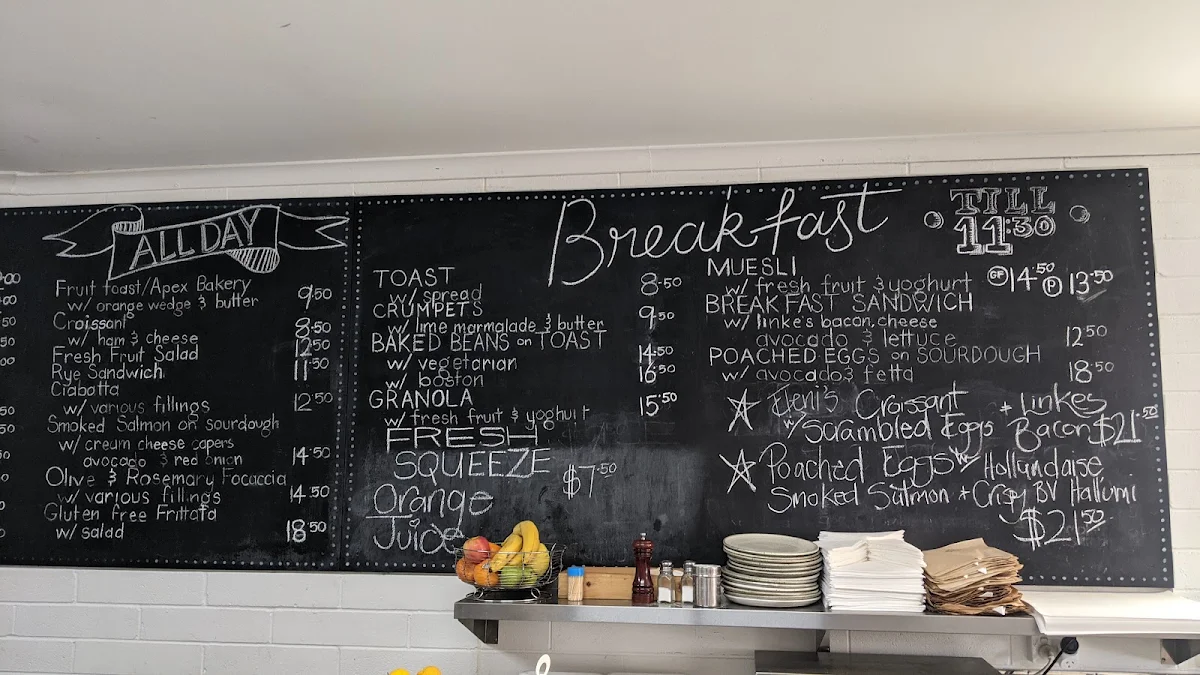 ALL DAY
Fruit toast/Apex Bakery
w/ orange wedge & butter 9.50
Croissant
w/ ham & cheese 8.50
Fresh Fruit Salad 12.50
Rye Sandwich 11.50
Ciabatta
w/ various fillings 12.50
Smoked Salmon on sourdough
w/ cream cheese capers
avocado & red onion 14.50
Olive & Rosemary Focaccia
w/ various fillings 14.50
Gluten free Frittata
w/ salad 18.50
Breakfast
TILL
11:30
TOAST
w/ spread 8.50
CRUMPETS
w/ lime marmalade & butter 9.50
BAKED BEANS on TOAST
w/ vegetarian 14.50
w/ boston 16.50
GRANOLA
w/ fresh fruit & yoghurt 15.50
FRESH
SQUEEZE
Orange $7.50
Juice
MUESLI
w/ fresh fruit & yoghurt GF 14.50 P 13.50
BREAKFAST SANDWICH
w/ linke's bacon, cheese
avocado & lettuce 12.50
POACHED EGGS on SOURDOUGH
w/ avocado & fetta 18.50
Eleni's Croissant + Linkes
w/ Scrambled Eggs Bacon $21.50
Poached Eggs w/ Hollandaise
Smoked Salmon + Crispy BV Hallumi
$21.50